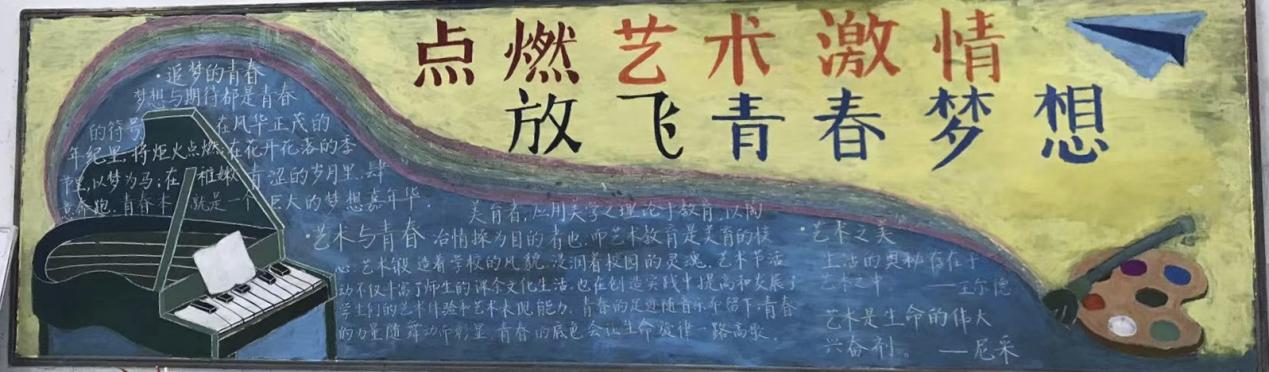 点燃艺术激情
放飞青春梦想
·追梦的青春
梦想与期待都是青春
的符号 在风华正茂的
年纪里,将炬火点燃;在花开花落的季
节里,以梦为马;在稚嫩青涩的岁月里,肆
意奔跑.青春本就是一个巨大的梦想嘉年华.
·艺术与青春
美育者,应用美学之理论于教育,以陶
冶情操为目的者也.而艺术教育是美育的核
心.艺术锻造着学校的风貌,浸润着校园的灵魂.艺术节活
动不仅丰富了师生的课余文化生活,也在创造实践中提高和发展了
学生们的艺术体验和艺术表现能力.青春的足迹随音乐而留下;青春
的力量随舞动而彰显,青春的底色会让生命旋律一路高歌.
·艺术之美
生活的奥秘存在于
艺术之中 ——王尔德
艺术是生命的伟大
兴奋剂。 ——尼采